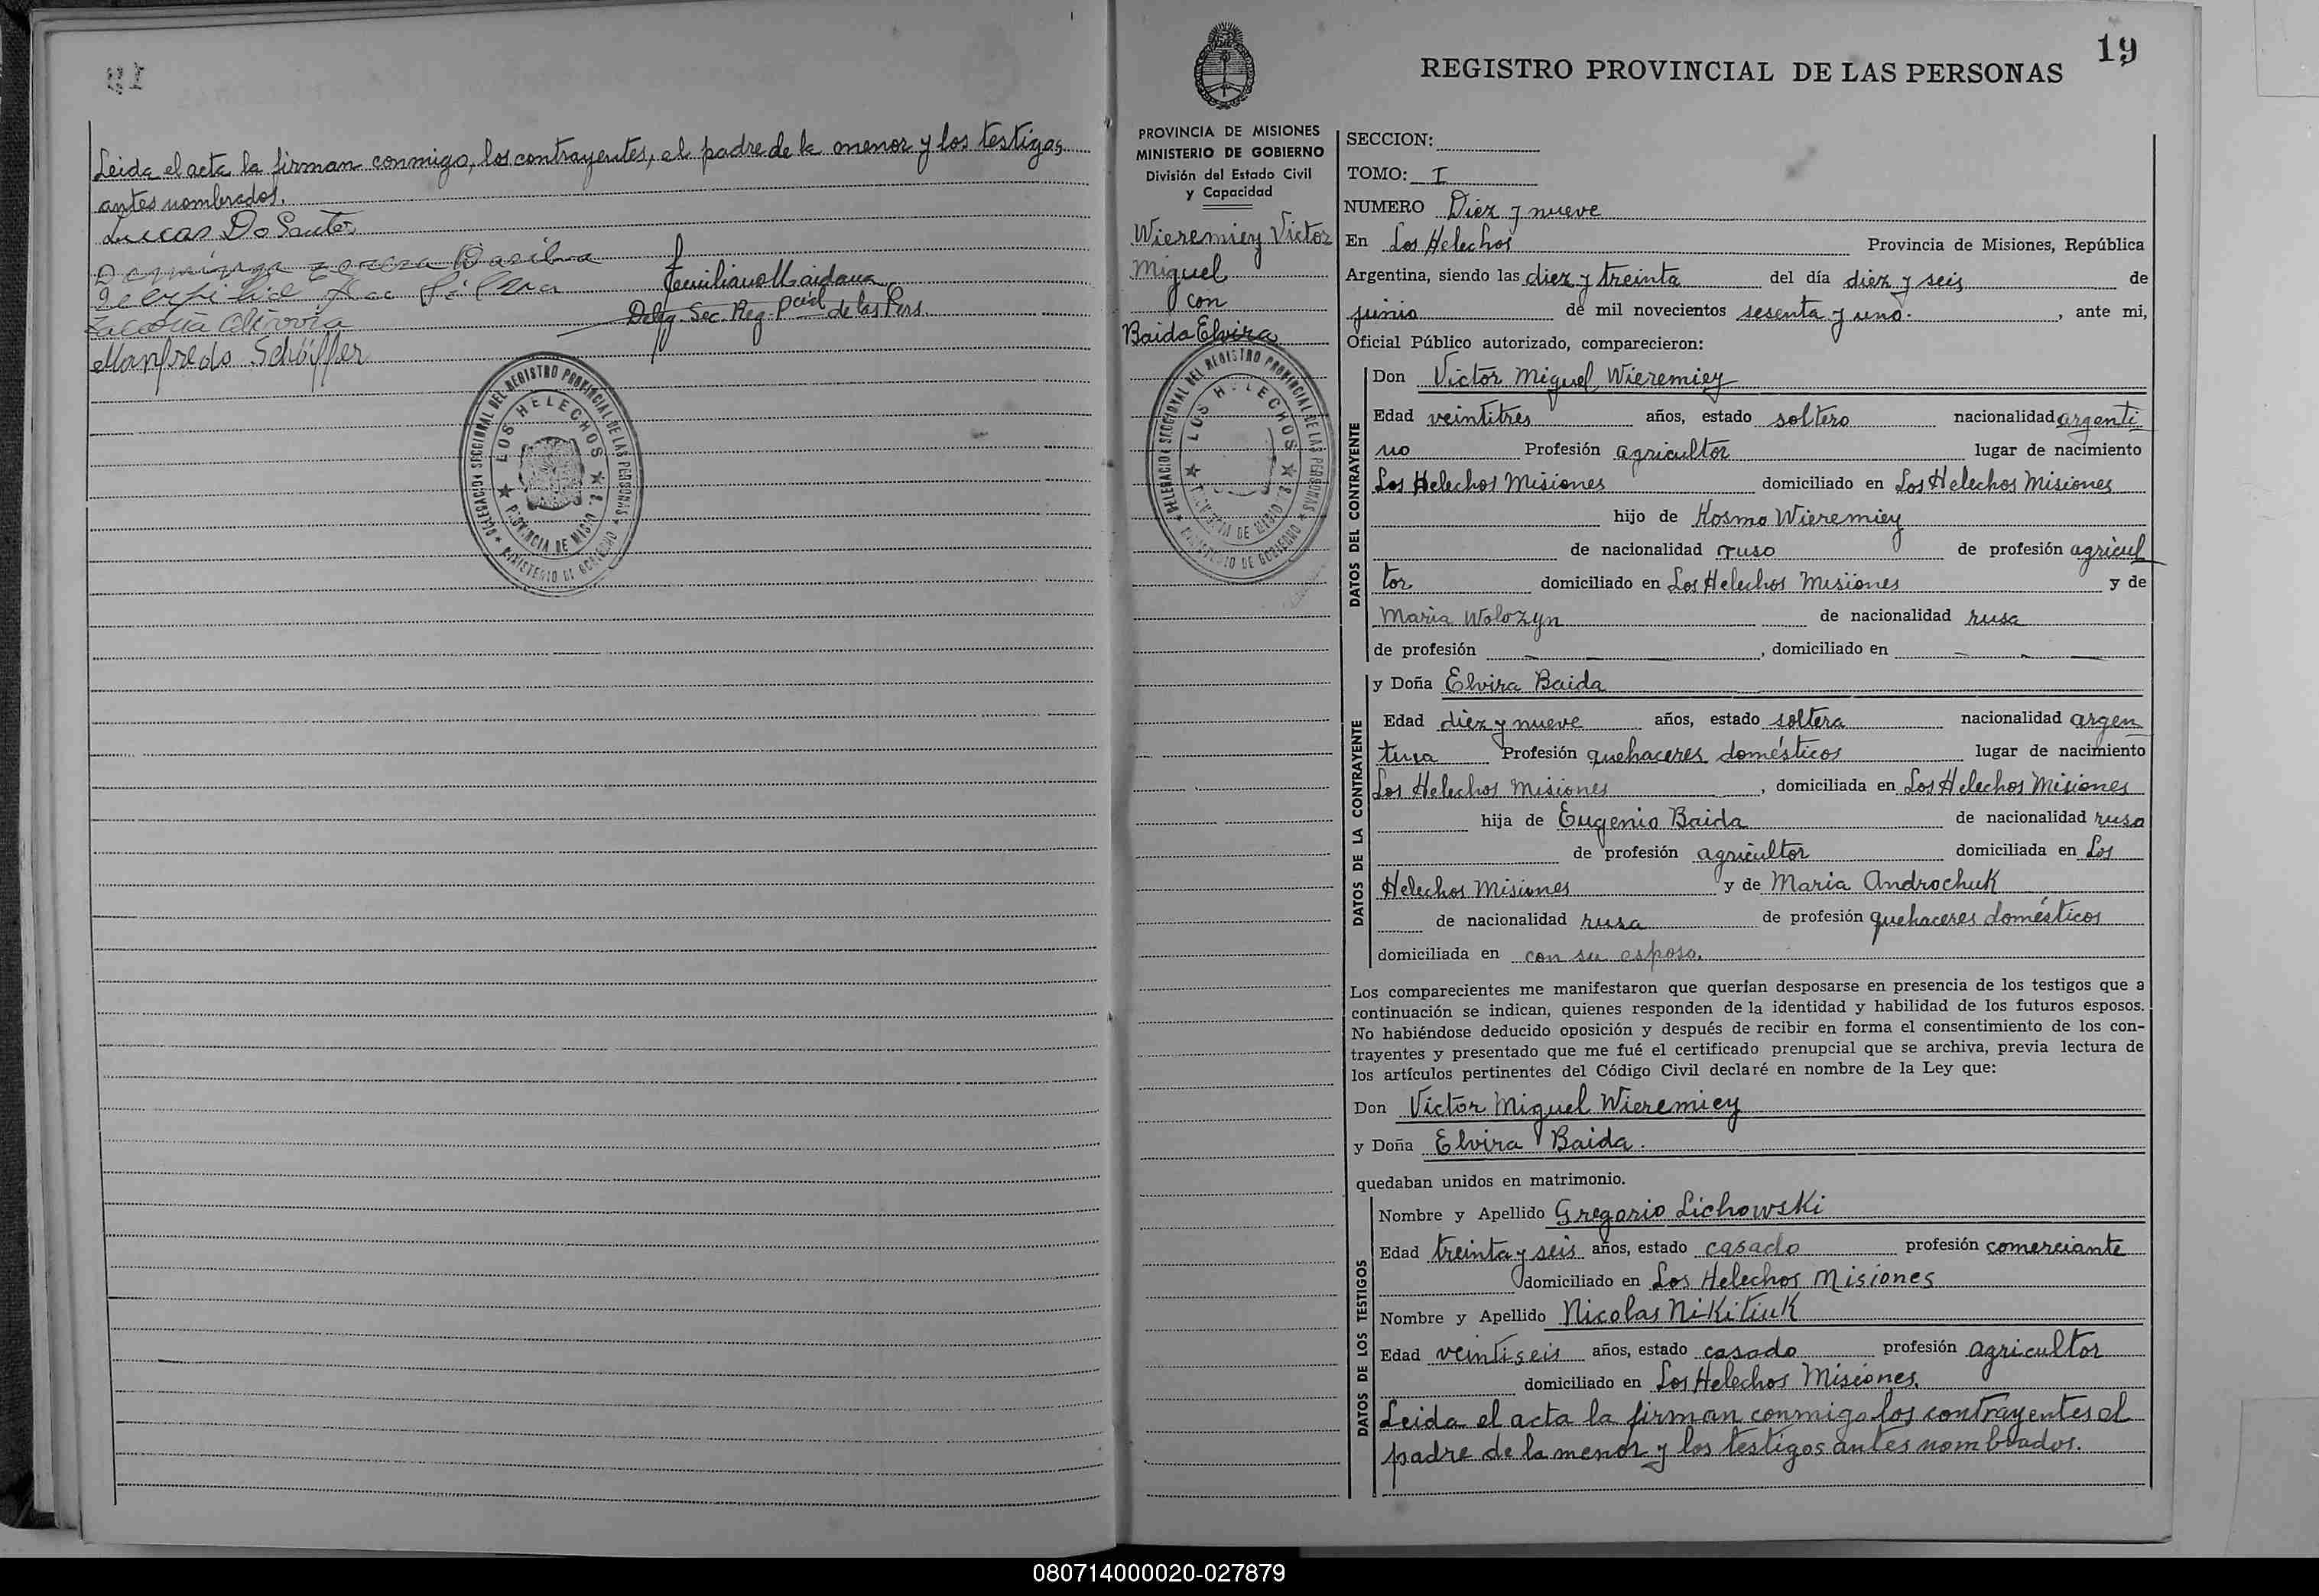 Leida el acta la firman conmigo, los contrayentes, el padre de la menor y los testigos
antes nombrados.
Lucas Do Santo
Emiliano Maidana
Deleg. Sec. Reg. Pcial de las Pers.
Manfredo Schäffer
DELEGACION SECCIONAL DEL REGISTRO PROVINCIAL DE LAS PERSONAS
LOS HELECHOS
PROVINCIA DE MISIONES
MINISTERIO DE GOBIERNO
19
REGISTRO PROVINCIAL DE LAS PERSONAS
PROVINCIA DE MISIONES
MINISTERIO DE GOBIERNO
División del Estado Civil
y Capacidad
Wieremiey Victor
Miguel
con
Baida Elvira
DELEGACION SECCIONAL DEL REGISTRO PROVINCIAL DE LAS PERSONAS
LOS HELECHOS
PROVINCIA DE MISIONES
MINISTERIO DE GOBIERNO
SECCION:
TOMO: I
NUMERO Diez y nueve
En Los Helechos Provincia de Misiones, República
Argentina, siendo las diez y treinta del día diez y seis de
junio de mil novecientos sesenta y uno. , ante mi,
Oficial Público autorizado, comparecieron:
DATOS DEL CONTRAYENTE
Don Victor Miguel Wieremiey
Edad veintitres años, estado soltero nacionalidad argenti
no Profesión agricultor lugar de nacimiento
Los Helechos Misiones domiciliado en Los Helechos Misiones
hijo de Kosmo Wieremiey
de nacionalidad ruso de profesión agricul
tor domiciliado en Los Helechos Misiones y de
Maria Wolozyn de nacionalidad rusa
de profesión , domiciliado en
DATOS DE LA CONTRAYENTE
y Doña Elvira Baida
Edad diez y nueve años, estado soltera nacionalidad argen
tina Profesión quehaceres domésticos lugar de nacimiento
Los Helechos Misiones , domiciliada en Los Helechos Misiones
hija de Eugenio Baida de nacionalidad ruso
de profesión agricultor domiciliada en Los
Helechos Misiones y de Maria Androchuk
de nacionalidad rusa de profesión quehaceres domésticos
domiciliada en con su esposo.
Los comparecientes me manifestaron que querían desposarse en presencia de los testigos que a
continuación se indican, quienes responden de la identidad y habilidad de los futuros esposos.
No habiéndose deducido oposición y después de recibir en forma el consentimiento de los con-
trayentes y presentado que me fué el certificado prenupcial que se archiva, previa lectura de
los artículos pertinentes del Código Civil declaré en nombre de la Ley que:
Don Victor Miguel Wieremiey
y Doña Elvira Baida.
quedaban unidos en matrimonio.
DATOS DE LOS TESTIGOS
Nombre y Apellido Gregorio Lichowski
Edad treinta y seis años, estado casado profesión comerciante
domiciliado en Los Helechos Misiones
Nombre y Apellido Nicolas Nikitiuk
Edad veintiseis años, estado casado profesión agricultor
domiciliado en Los Helechos Misiones.
Leida el acta la firman conmigo los contrayentes el
padre de la menor y los testigos antes nombrados.
080714000020-027879